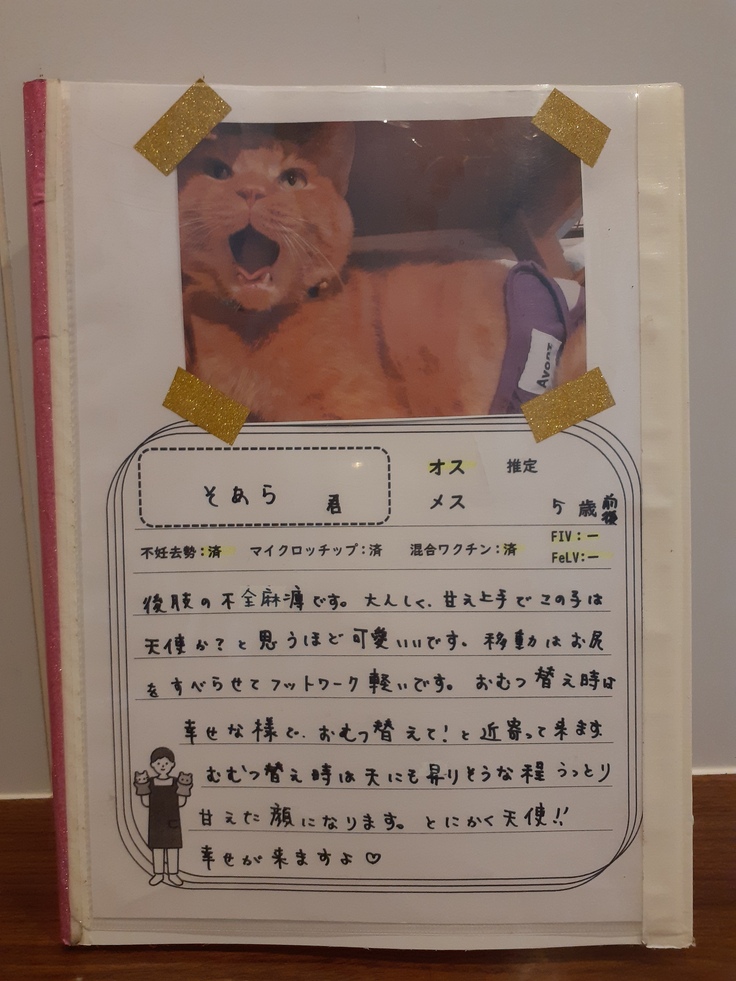 Avon
オス 推定
そあら 君
メス 5 歳 前後
不妊去勢：済 マイクロッチップ：済 混合ワクチン：済
FIV：ー
FeLV：ー
後肢の不全麻痺です。大人しく、甘え上手でこの子は
天使か？と思うほど可愛いいです。移動はお尻
をすべらせてフットワーク軽いです。おむつ替え時は
幸せな様で、おむつ替えて！と近寄って来ます
おむつ替え時は天にも昇りそうな程うっとり
甘えた顔になります。とにかく天使!!
幸せが来ますよ♡